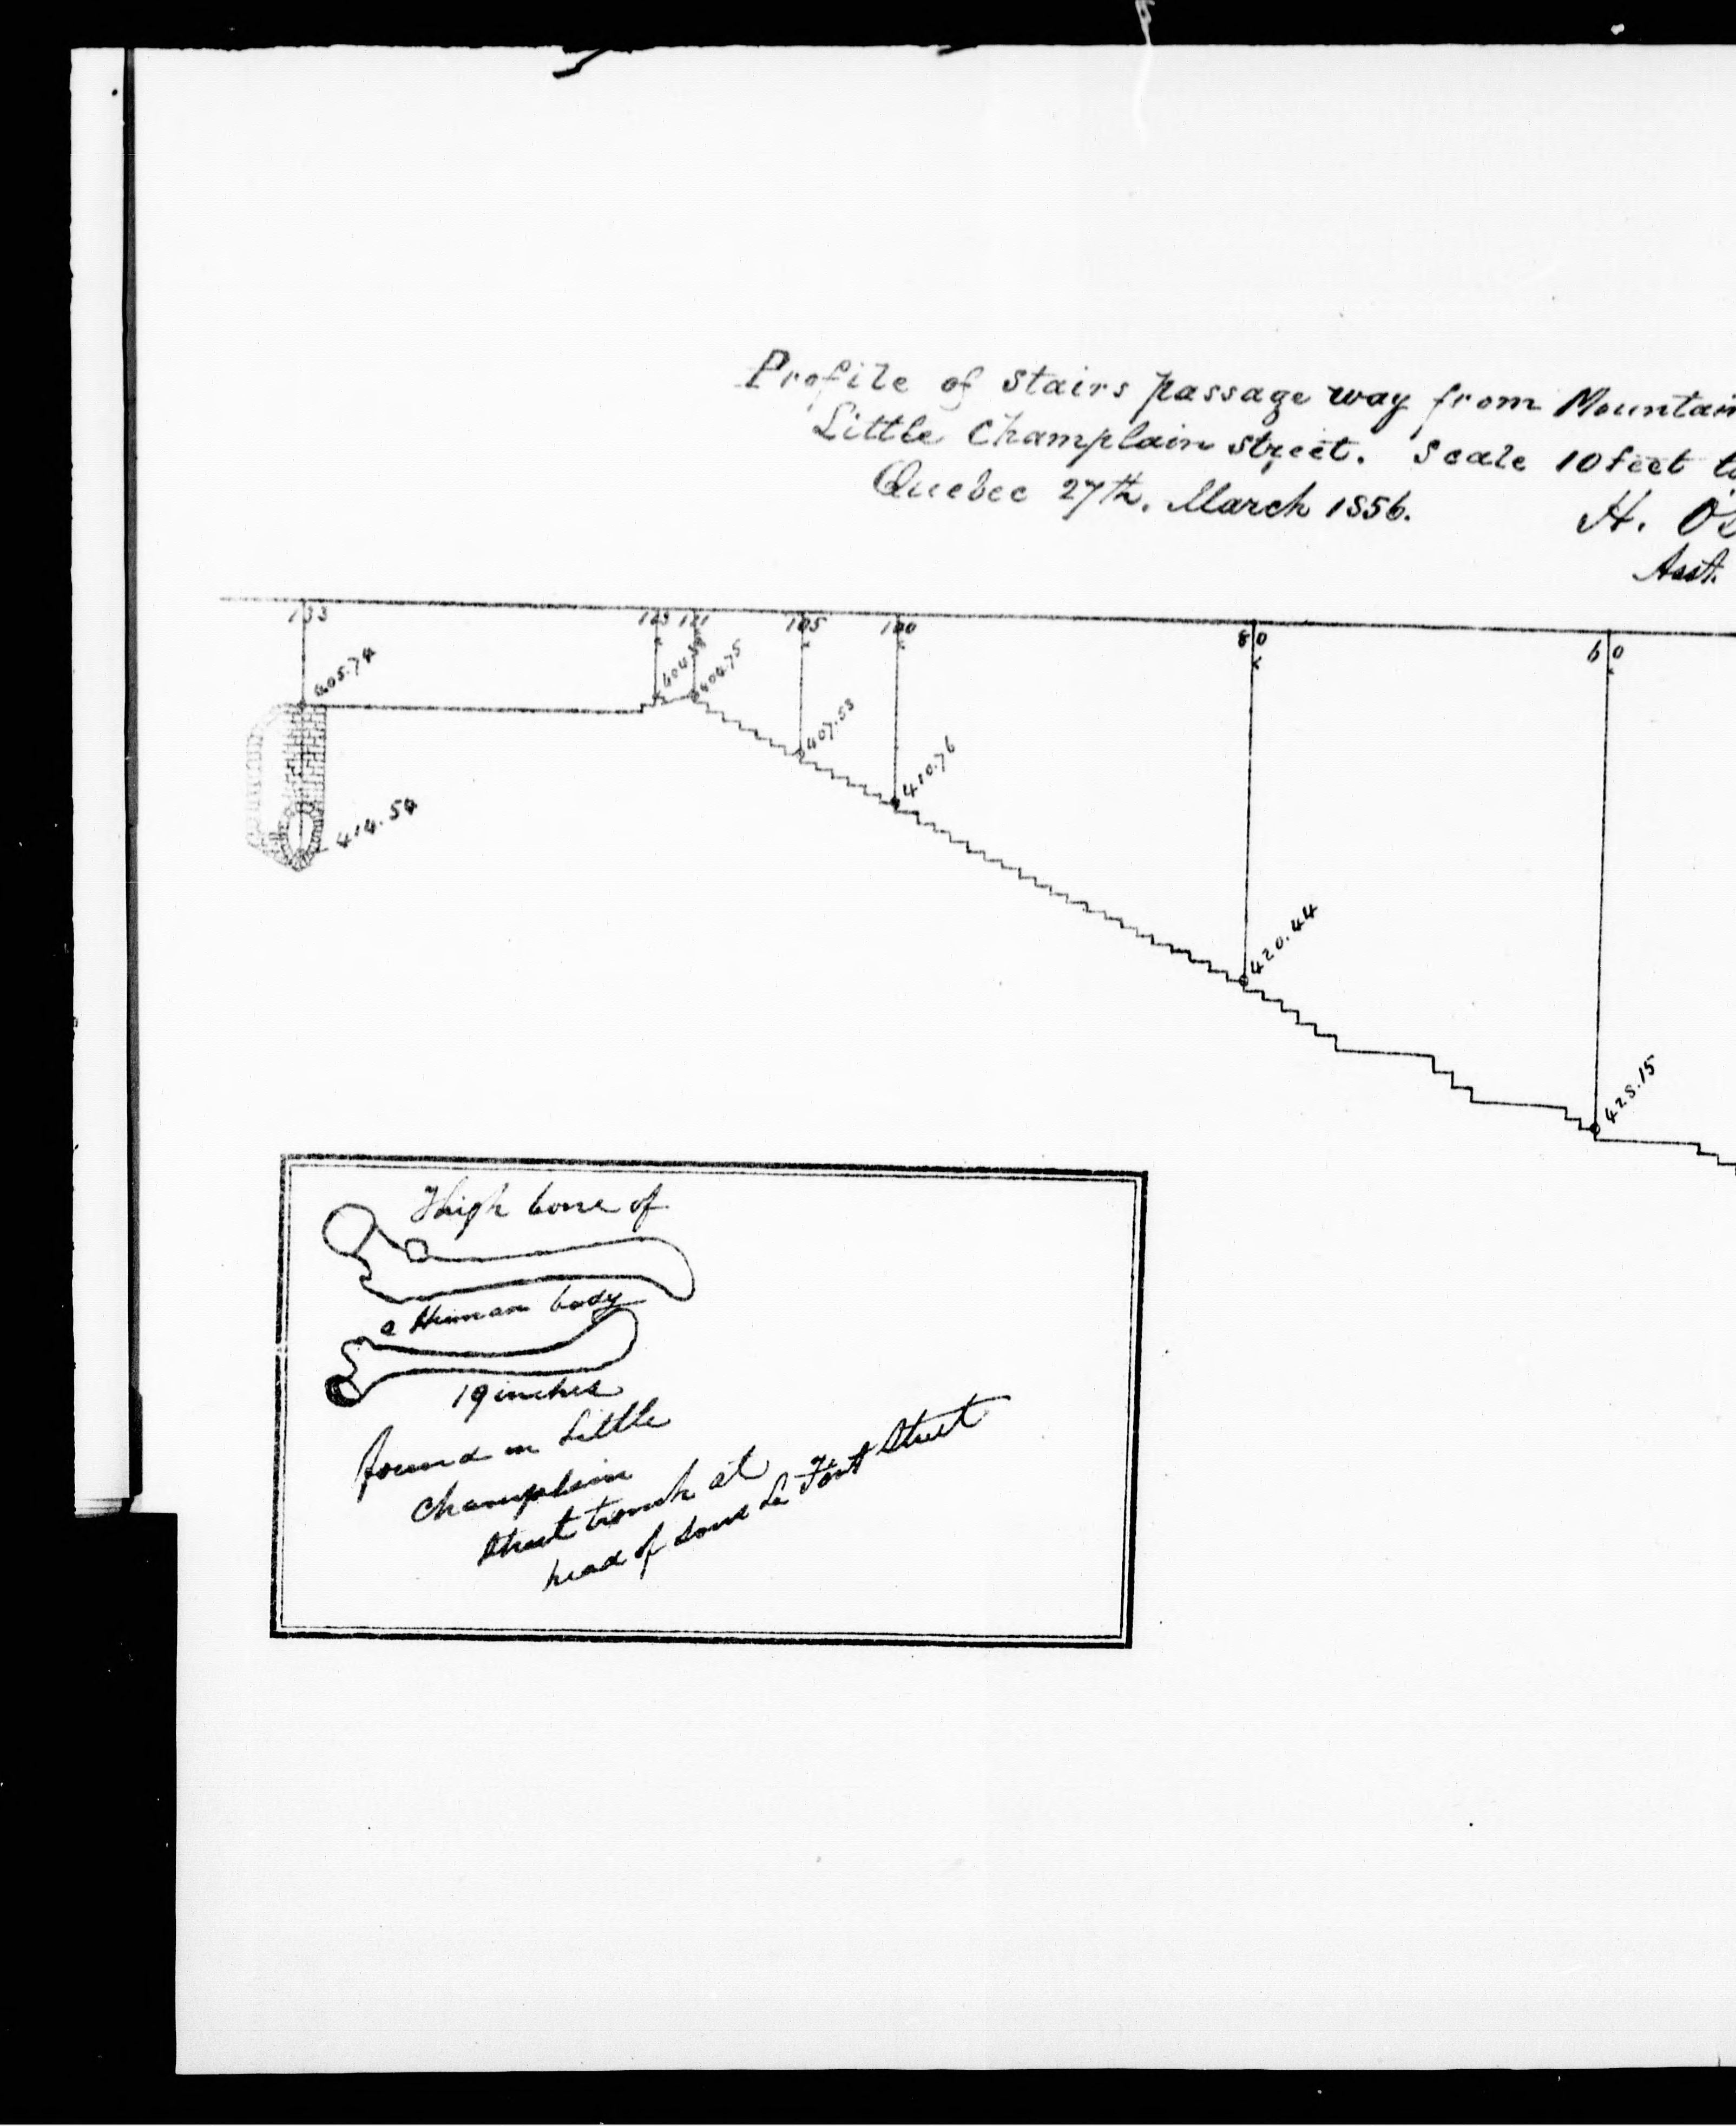 Profile of Stairs passage way from Mountain
Little Champlain Street. Scale 10 feet to
Quebec 27th. March 1856.
H. O'
Asst.
133
113
105
100
80
60
405.74
404.75
407.53
410.76
414.54
420.44
428.15
Thigh bone of
a Human body
19 inches
found in Little
Champlain
Street trench at
head of Sous Le Fort Street